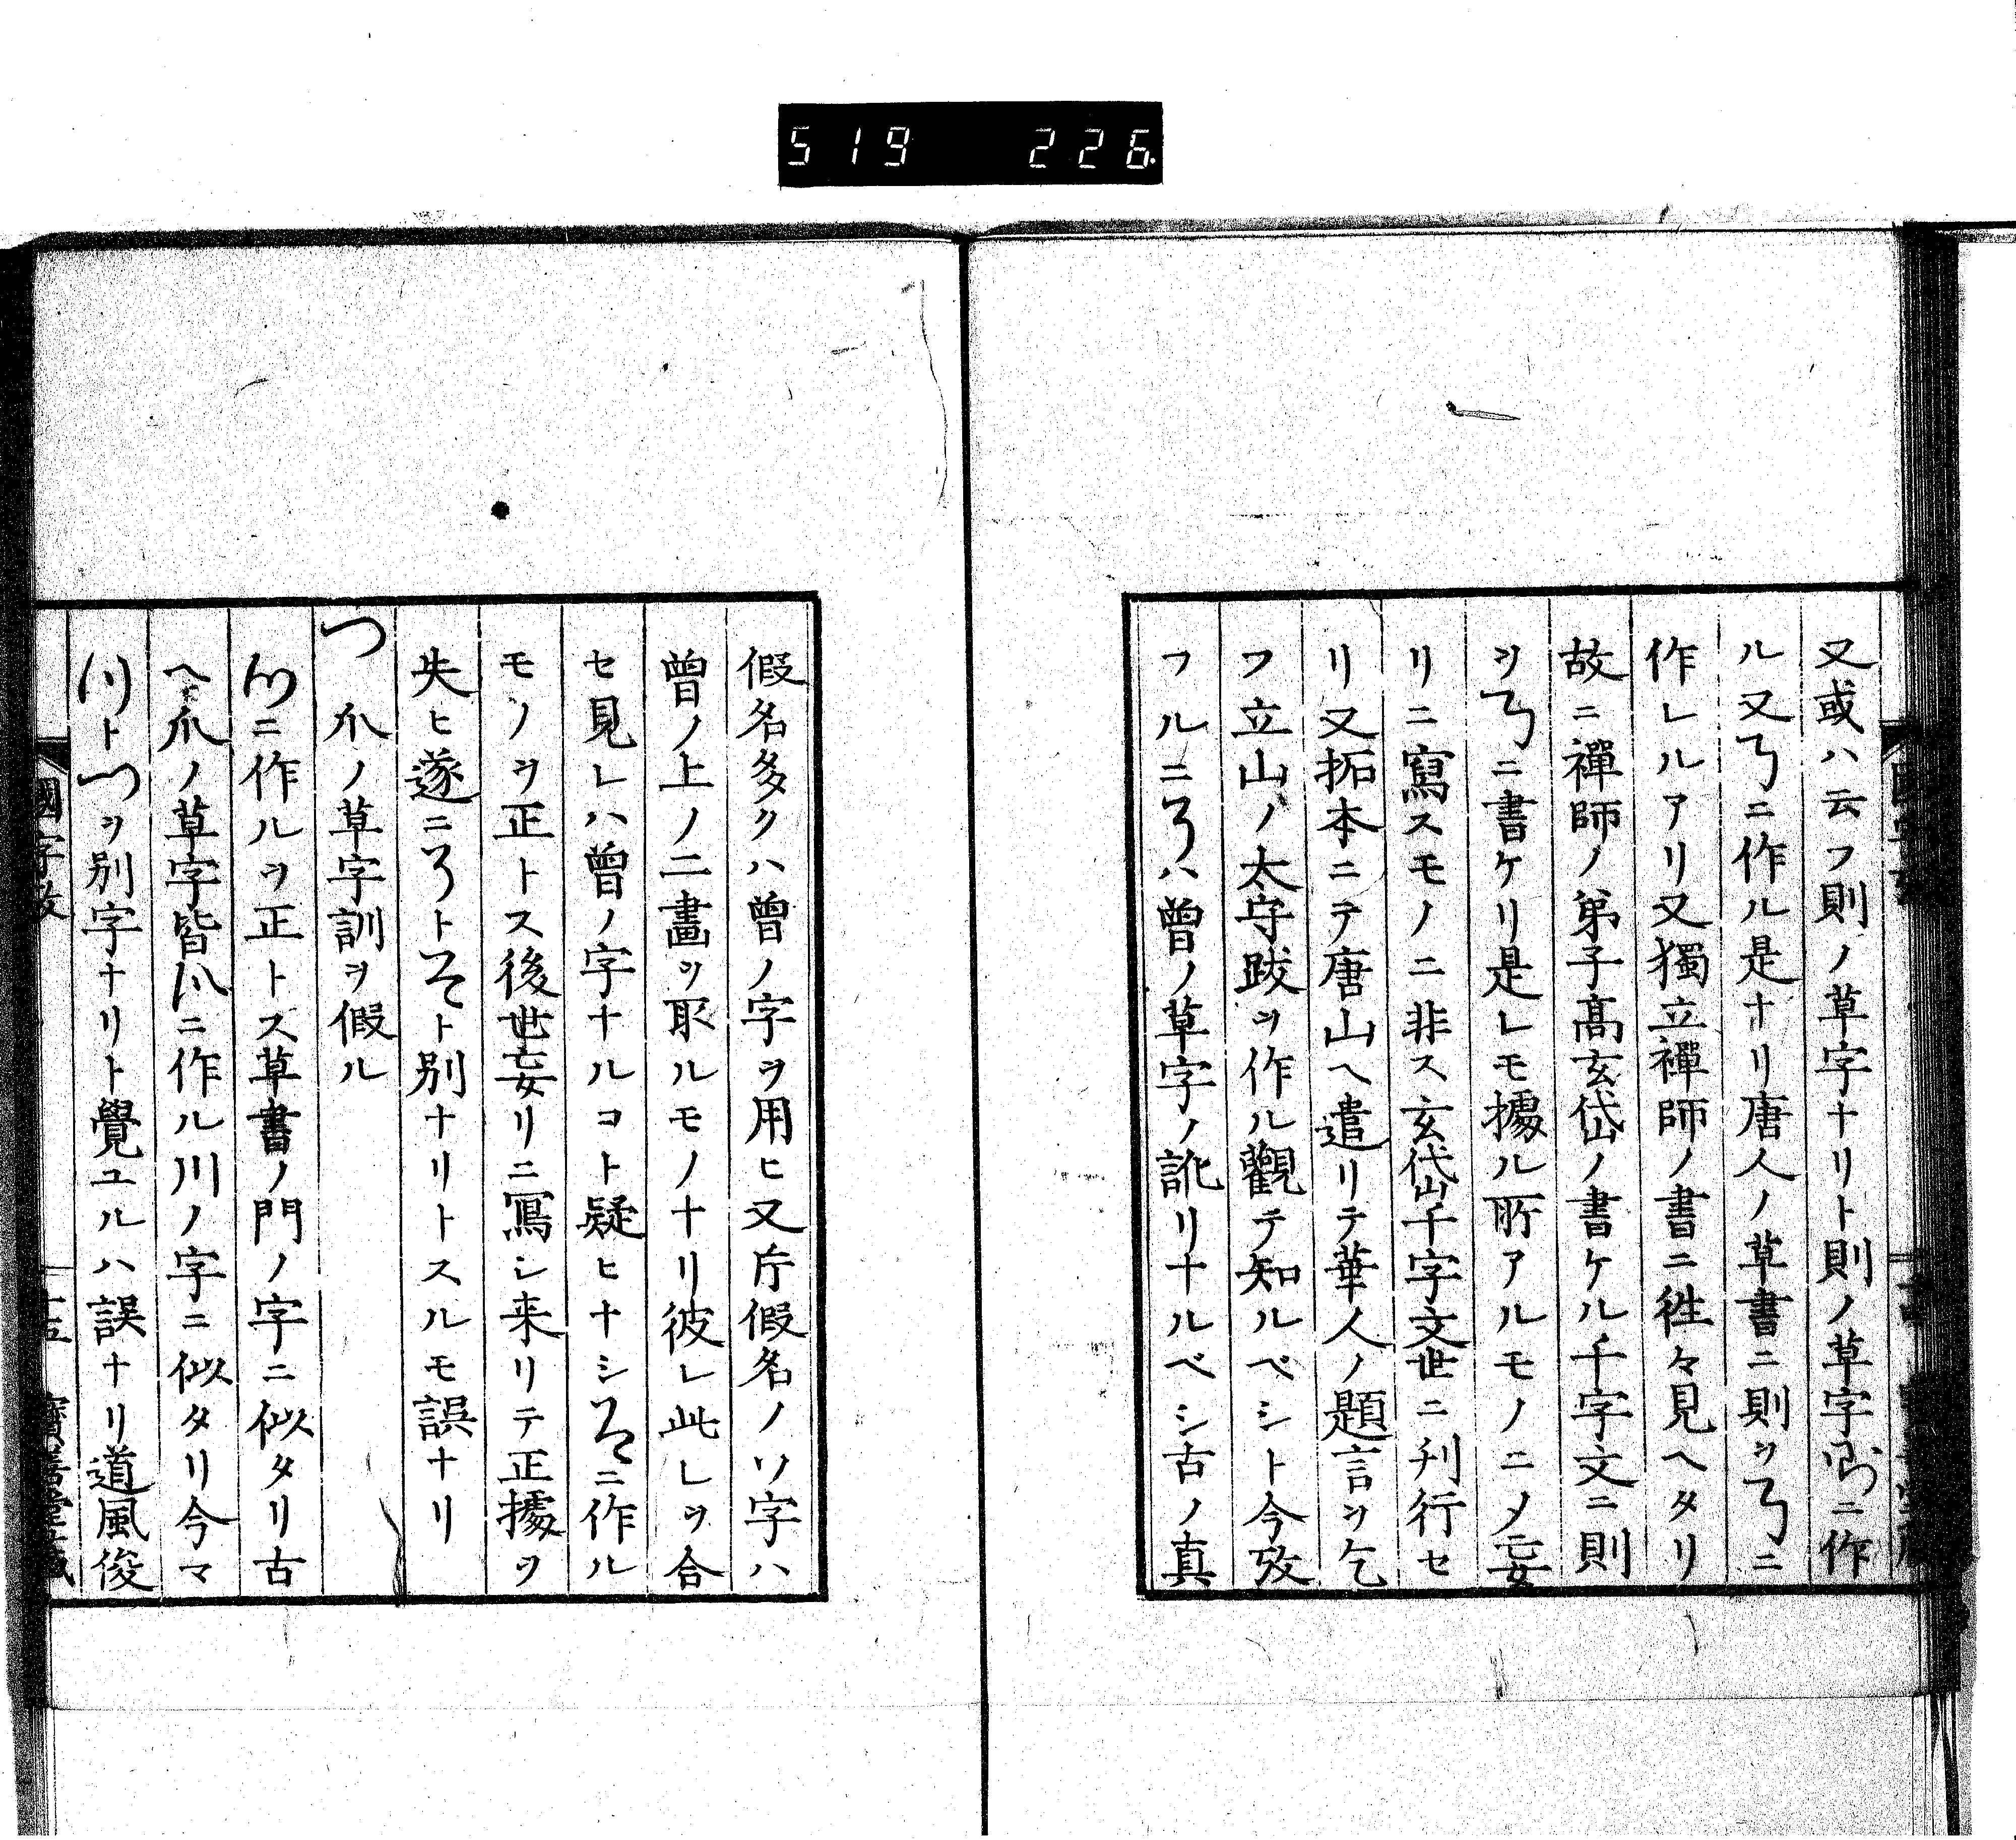 519 226
又或ハ云フ則ノ草字ナリト則ノ草字ニ作
ル又ニ作ル是ナリ唐人ノ草書ニ則ヲニ
作レルアリ又獨立禪師ノ書ニ徃々見ヘタリ
故ニ禪師ノ弟子髙玄岱ノ書ケル千字文ニ則
ヲニ書ケリ是レモ據ル所アルモノニメ妄
リニ寫スモノニ非ス玄岱千字文世ニ刋行セ
リ又拓本ニテ唐山ヘ遣リテ華人ノ題言ヲ乞
フ立山ノ太守跋ヲ作ル觀テ知ルベシト今攷
フルニハ曽ノ草字ノ訛リナルベシ古ノ真
假名多クハ曽ノ字ヲ用ヒ又片假名ノソ字ハ
曽ノ上ノ二畫ヲ取ルモノナリ彼レ此レヲ合
セ見レハ曽ノ字ナルコト疑ヒナシそニ作ル
モノヲ正トス後世妄リニ寫シ来リテ正據ヲ
失ヒ遂ニトそト別ナリトスルモ誤ナリ
つ 爪ノ草字訓ヲ假ル
ニ作ルヲ正トス草書ノ門ノ字ニ似タリ古
ヘハ爪ノ草字皆ニ作ル川ノ字ニ似タリ今マ
トつヲ别字ナリト覺ユルハ誤ナリ道風俊
國字攷
十五
寳善堂藏